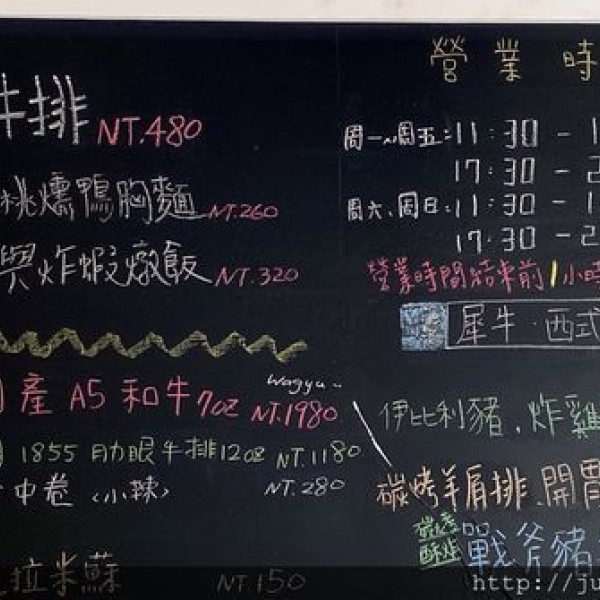 牛排 NT.480
桃燻鴨胸麵 NT.260
與炸蝦燉飯 NT.320
產 A5 和牛 7oz NT.1980
Wagyu
1855 肋眼牛排 12oz NT.1180
中卷（小辣） NT.280
拉米蘇 NT.150
營業時
周一~周五:11:30 - 1
17:30 - 2
周六、周日:11:30 - 1
17:30 - 2
營業時間結束前1小時
犀牛·西式
伊比利豬、炸雞
碳烤羊肩排、開胃
戰斧豬
http://ju